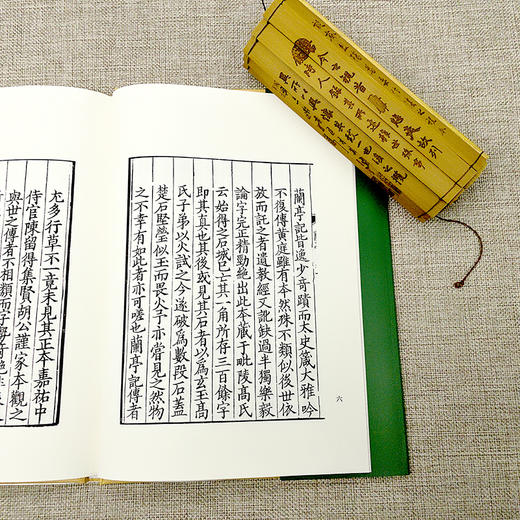 蘭亭記皆逸少奇蹟而太史箴大雅吟
不復傳黃庭雖有本然殊不類似後世依
放而託之者遺教經又訛缺過半獨樂毅
論字完正精勁絕出此本藏于毗陵高氏
云始得之石城已亡其一角所存三百餘字
即其真也其後或見其石者以為玄玉高
氏子弟以火試之今遂破為數段石蓋
楚石堅瑩似玉而畏火予亦嘗見之然物
之不幸有如此者亦可嗟也蘭亭記傳者
六
尤多行草不一竟未見其正本嘉祐中
侍官陳留得集賢胡公謹家本觀之
與世之傳者不相類而字
今之視昔悲夫故列
時人錄其所述雖世殊事
異所以興懷其致一也後之覽